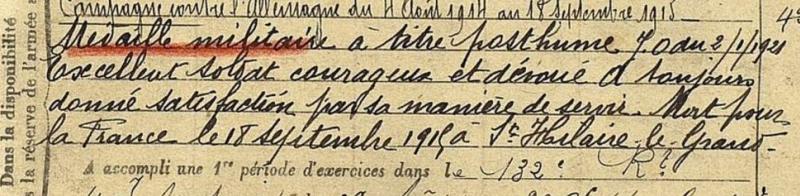 Campagne contre l'Allemagne du 4 Août 1914 au 18 Septembre 1915
Médaille militaire à titre posthume J.O du 2/1/1921
Excellent soldat courageux et dévoué A toujours
donné satisfaction par sa manière de servir. Mort pour
la France le 18 septembre 1915 à St. Hilaire-le-Grand-
A accompli une 1re période d'exercices dans le 132e Rt.
Dans la disponibilité
la réserve de l'armée a